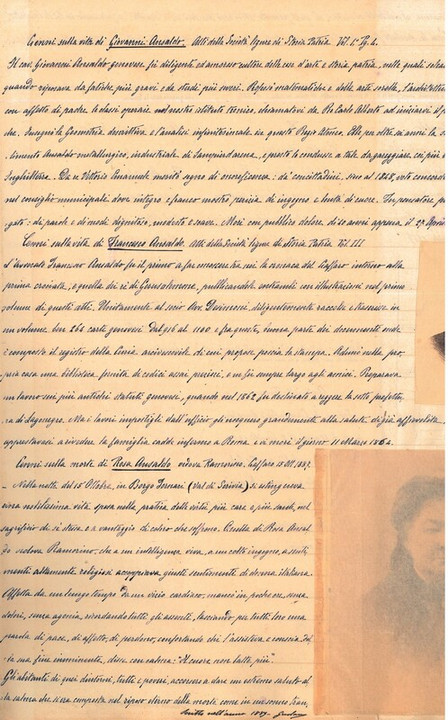 Cenni sulla vita di Giovanni Ansaldo. Atti della Società ligure di Storia Patria Vol. 1° Pg. 
Il cav. Giovanni Ansaldo genovese fu diligente ed amoroso cultore delle cose d'arte e storia patria, nelle quali
quando riposava da fatiche più gravi e da studi più severi. Professò matematiche e delle arti belle, l'architettura
con affetto di padre le classi operaie nel nostro istituto tecnico, chiamatovi da Re Carlo Alberto ad iniziarvi
che. Insegnò la Geometria descrittiva e l'analisi infinitesimale in questo Regio Ateneo. Alte, per oltre
limento Ansaldo metallurgico, industriale di Sampierdarena, e presto la condusse a tale da gareggiare coi più
Inghilterra. Da Vittorio Amanuele meritò segno di onorificenza: dai concittadini, sino al 1848, voti
nel consiglio municipale dove integro e franco mostrò perizia di ingegno e bontà di cuore. Fu pensatore
gato: di parole e di modi dignitoso, modesto e soave. Morì con pubblico dolore di 40 anni appena il
Cenni sulla vita di Francesco Ansaldo Atti della Società ligure di Storia Patria Vol. III
L'avvocato Francesco Ansaldo fu il primo a far conoscere tra noi la cronaca del Caffaro intorno alla
prima crociata, e quella dei re di Gerusalemme, pubblicandole entrambe con illustrazioni nel primo
volume di questi atti. Unitamente al socio Avv. Desimoni, diligentemente raccolse e trascrisse in
un volume ben 266 carte genovesi dal 916 al 1100 e fra queste, buona parte dei documenti onde
è composto il registro della Curia arcivescovile di cui propose poscia la stampa. Adunò nella pro-
pria casa una biblioteca fornita di codici assai preziosi, e ne fu sempre largo agli amici. Preparava
un lavoro sui più antichi statuti genovesi, quando nel 1862 fu destinato a reggere la sotto prefettu-
ra di Lagonegro. Ma i lavori impostigli dall'officio gli nuocquero grandemente alla salute, di già affievolita
apprestavasi a rivedere la famiglia cadde infermo a Roma e vi morì il giorno 11 Marzo 1864.
Cenni sulla morte di Rosa Ansaldo vedova Ramorino. Caffaro 18 Ott. 1889.
- Nella notte del 15 Ottobre, in Borgo Fornari (Val di Scrivia) si estingueva
una nobilissima vita spesa nella pratica delle virtù più care e più sante, nel
sagrificio di sè stessa e a vantaggio di coloro che soffrono. Quella di Rosa Ansal-
do vedova Ramorino, che a un'intelligenza viva, a un colto ingegno, a senti-
menti altamente religiosi accoppiava giusti sentimenti di donna italiana.
Affetta da un lungo tempo da un vizio cardiaco, mancò in poche ore, senza
dolori, senza agonia, ricordando tutti gli assenti, lasciando per tutti loro una
parola di pace, di affetto, di perdono, confortando chi l'assisteva e conscia del-
la sua fine imminente, disse con calma: "Il cuore non batte più".
Gli abitanti di quei dintorni, tutti e poveri, accorsero a dare un estremo saluto al-
la salma che stava composta nel riposo eterno della morte come in un sonno tran-
Scritto nell'anno 1889.